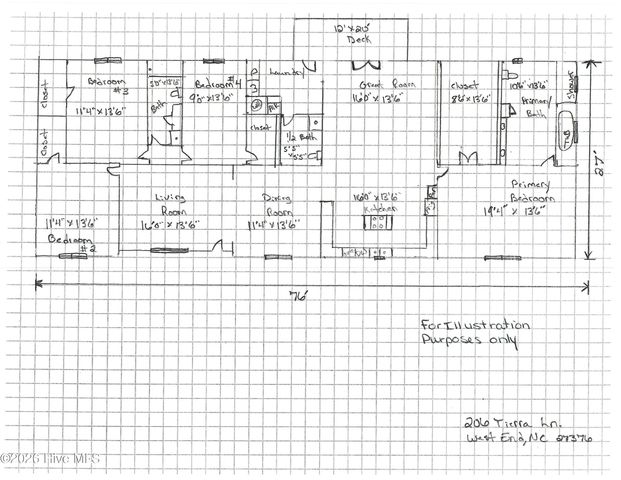 12'x20'
Deck
closet
Bedroom
#3
11'4" x 13'6"
Bath
Bedroom #4
Laundry
closet
1/2 Bath
5'5"
x5'5"
Great Room
16'0" x 13'6"
closet
8'6" x 13'6"
10'6" x 13'6"
Primary
Bath
Shower
Tub
closet
27'
11'4" x 13'6"
Bedroom
#2
Living
Room
16'0" x 13'6"
Dining
Room
11'4" x 13'6"
16'0" x 13'6"
Kitchen
Primery
Bedroom
19'4" x 13'6"
76'
For Illustration
Purposes only
206 Tierra Ln.
West End, NC 27376
©2026 Hive MLS